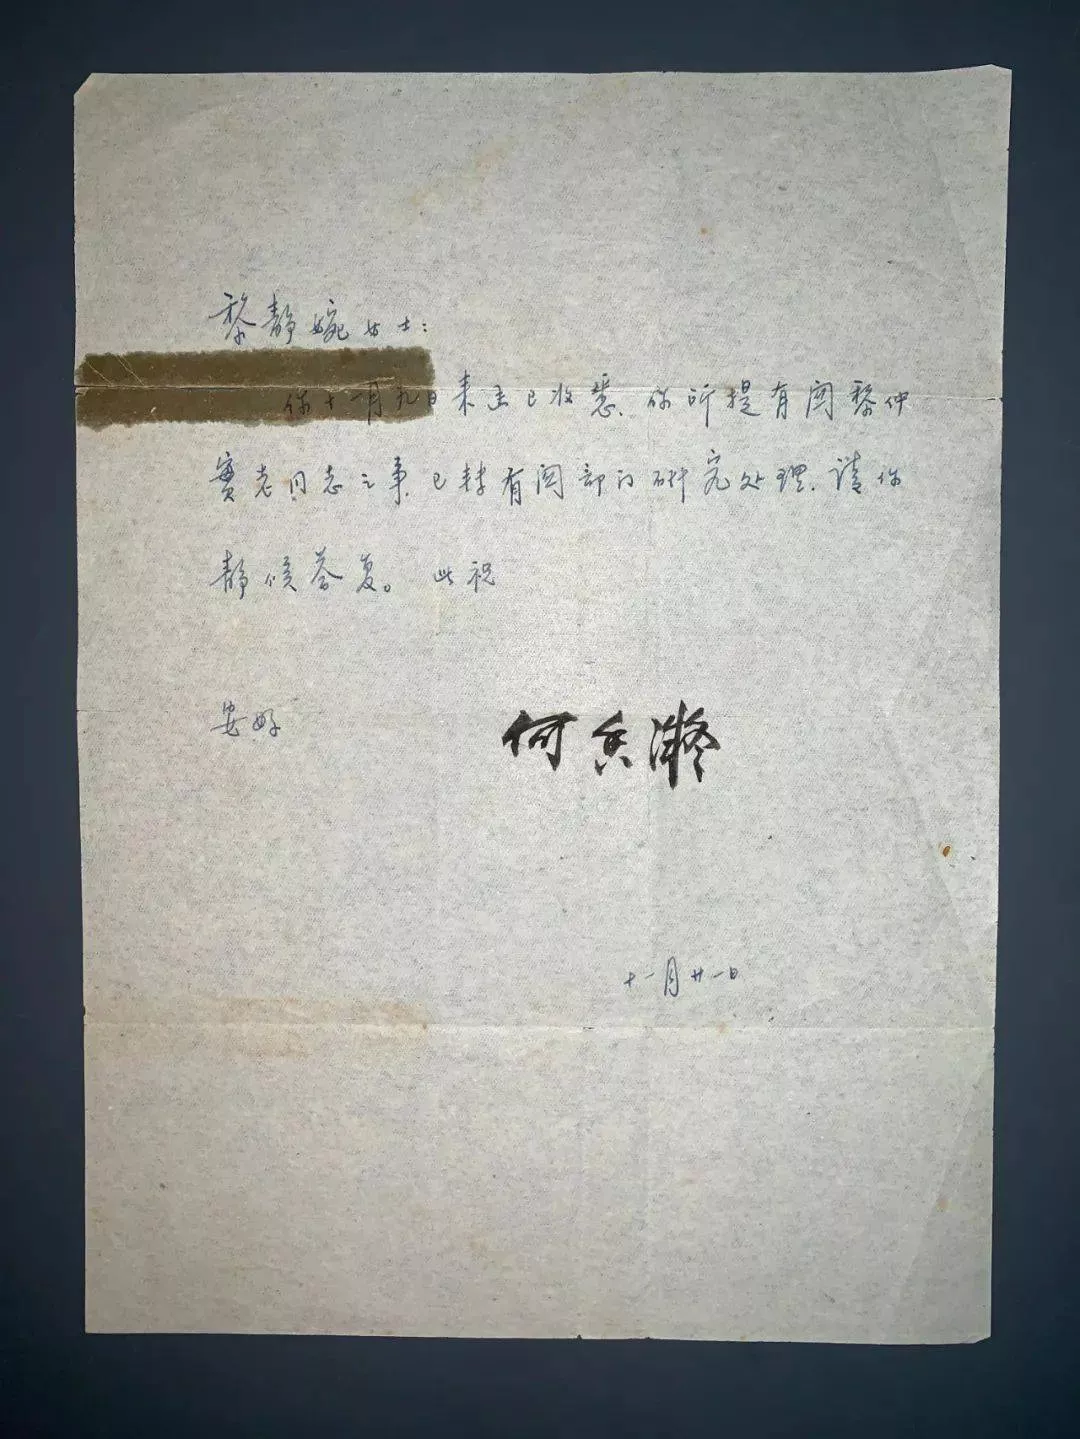 黎静婉女士：
你十一月九日来函已收悉、你所提有関黎仲
實老同志之事、已转有関部门研究处理、请你
静候荅复。此祝
安好
何香凝
十一月廿一日